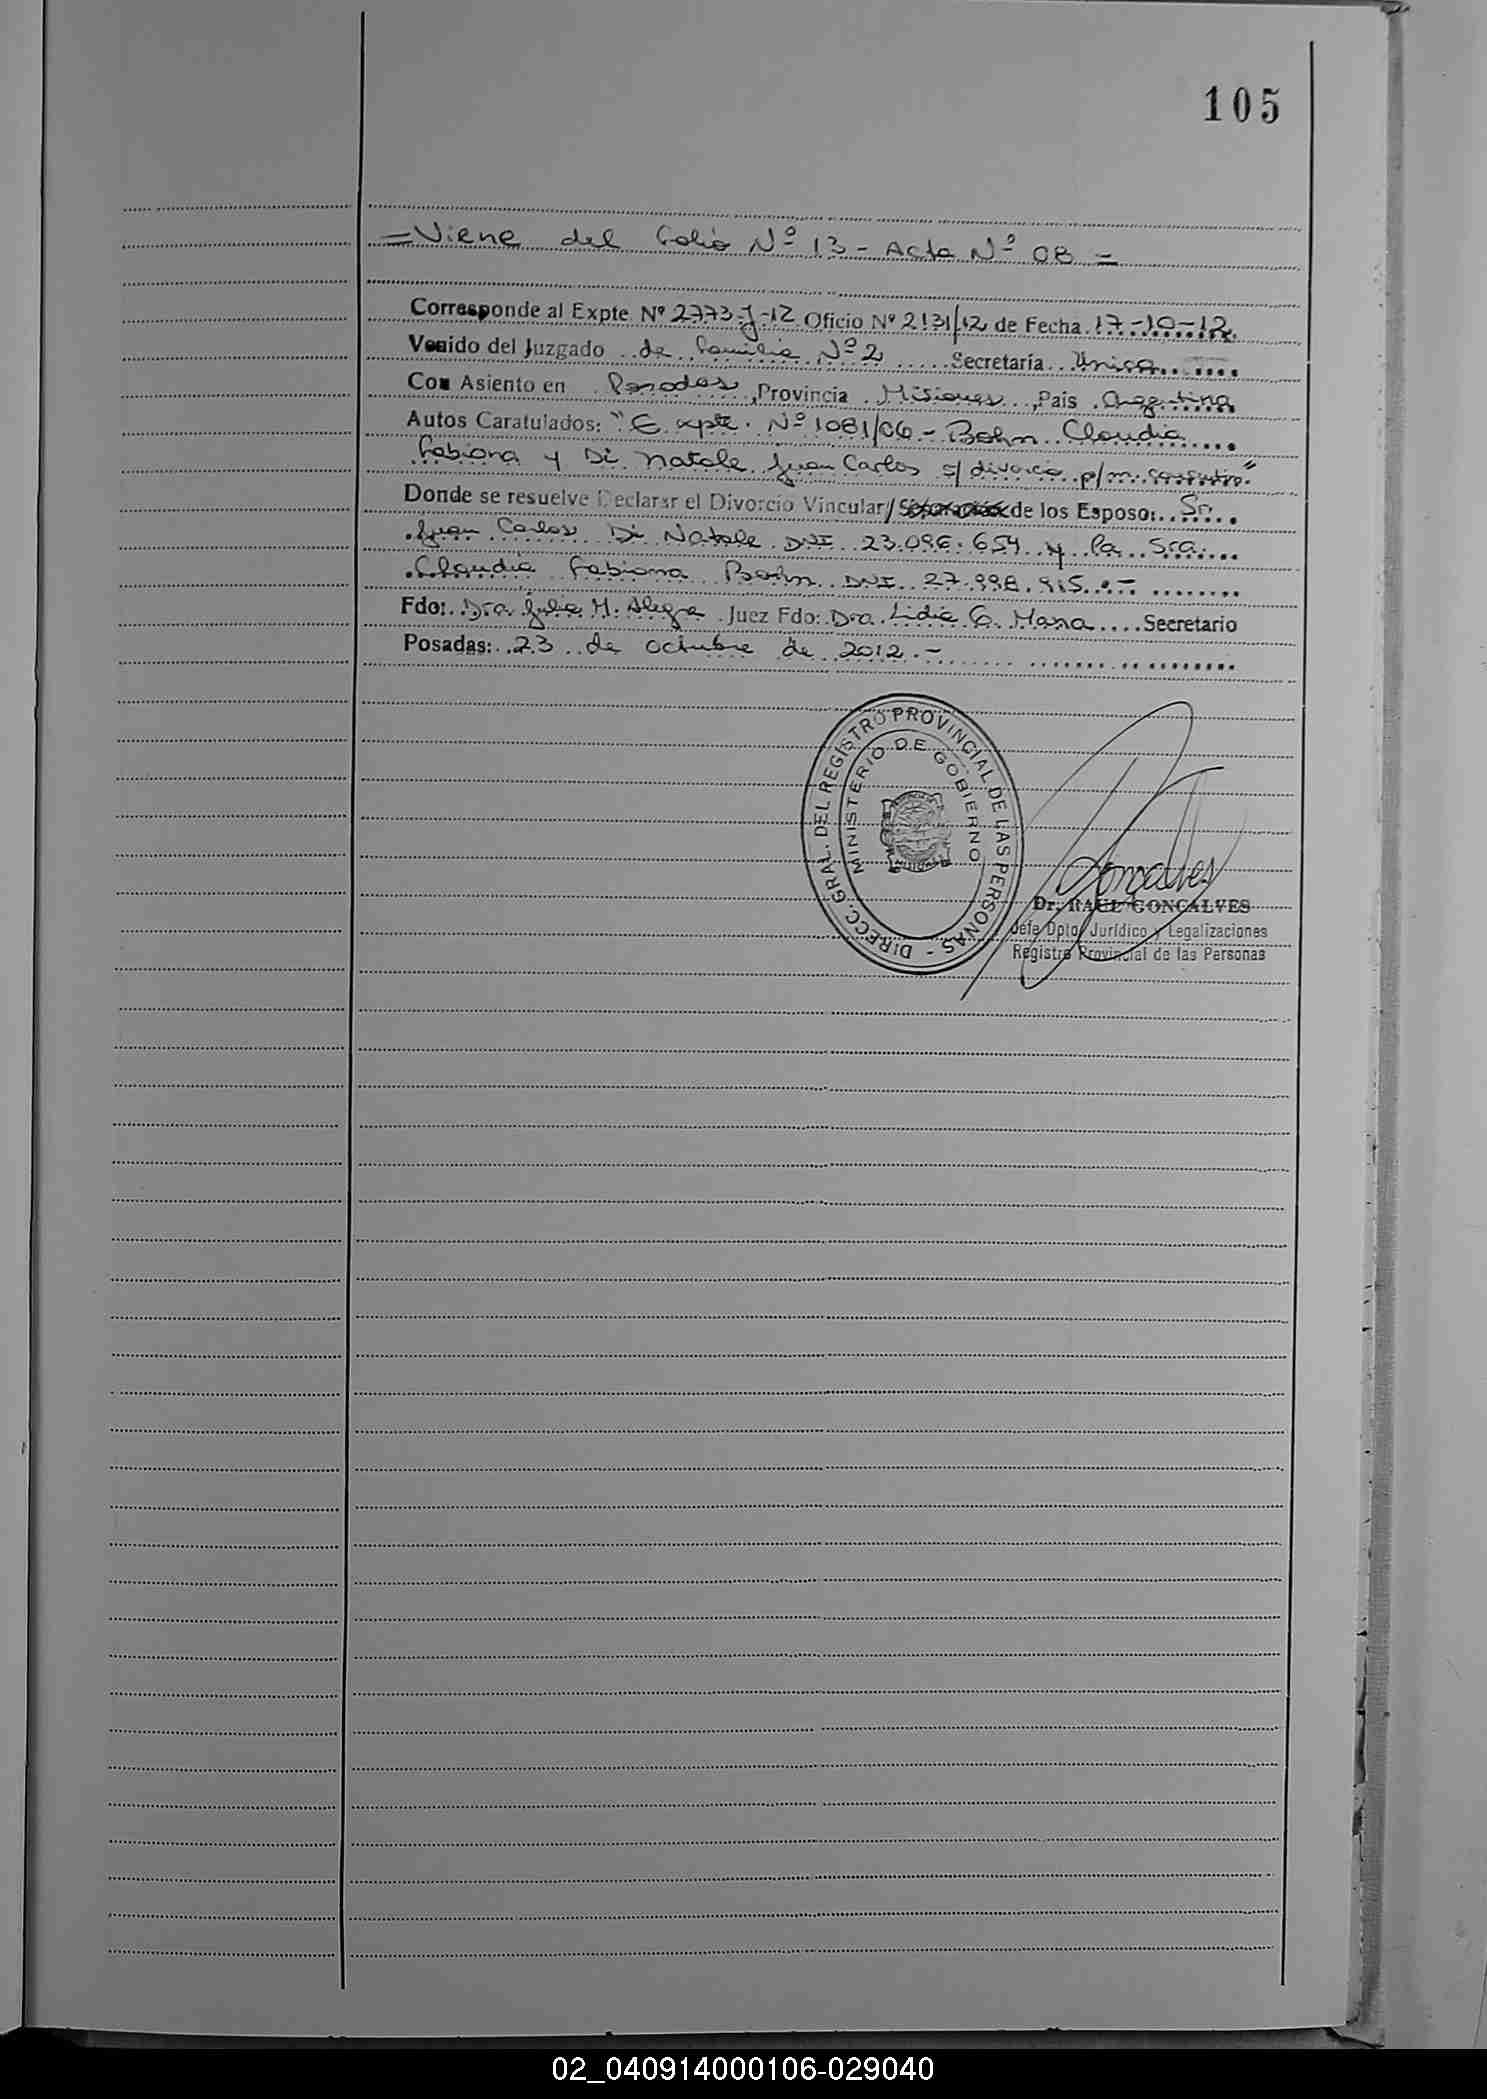 105
= Viene del Folio Nº 13 - Acta Nº 08 =
Corresponde al Expte Nº 2773-J-12 Oficio Nº 2131/12 de Fecha 17-10-12
Venido del Juzgado de Familia Nº 2 Secretaría Unica
Con Asiento en Posadas, Provincia Misiones, País Argentina
Autos Caratulados: "Expte. Nº 1081/06 - Bohn Claudia
Fabiana y Di Natale Juan Carlos s/ divorcio p/m. consentim."
Donde se resuelve Declarar el Divorcio Vincular/ de los Esposo: Sr.
Juan Carlos Di Natale DNI 23.096.654 y la Sra.
Claudia Fabiana Bohn DNI 27.998.915.-
Fdo: Dra. Julia M. Alegre Juez Fdo: Dra. Lidia G. Secretario
Posadas: 23 de octubre de 2012.-
DIRECC. GRAL. DEL REGISTRO PROVINCIAL DE LAS PERSONAS -
MINISTERIO DE GOBIERNO
Goncalves
Dr. RAUL GONCALVES
Jefe Dpto. Jurídico y Legalizaciones
Registro Provincial de las Personas
02_040914000106-029040